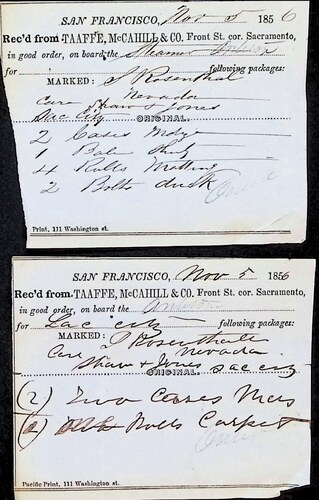 SAN FRANCISCO, Nov 5 1856
Rec'd from TAAFFE, McCAHILL & CO. Front St. cor. Sacramento,
in good order, on board the Steamer
for following packages:
MARKED: S Rosenthal
Care Nevada
Shaw & Jones
Sac City ORIGINAL.
2 Cases Mdze
1 Bale
4 Rolls Matting
2 Bolts duck
Print, 111 Washington st.
SAN FRANCISCO, Nov 5 1856
Rec'd from TAAFFE, McCAHILL & CO. Front St. cor. Sacramento,
in good order, on board the
for Sac City following packages:
MARKED: Rosenthal
Care Nevada
Shaw & Jones Sac City
ORIGINAL.
(2) Two Cases
Rolls Carpet
Pacific Print, 111 Washington st.